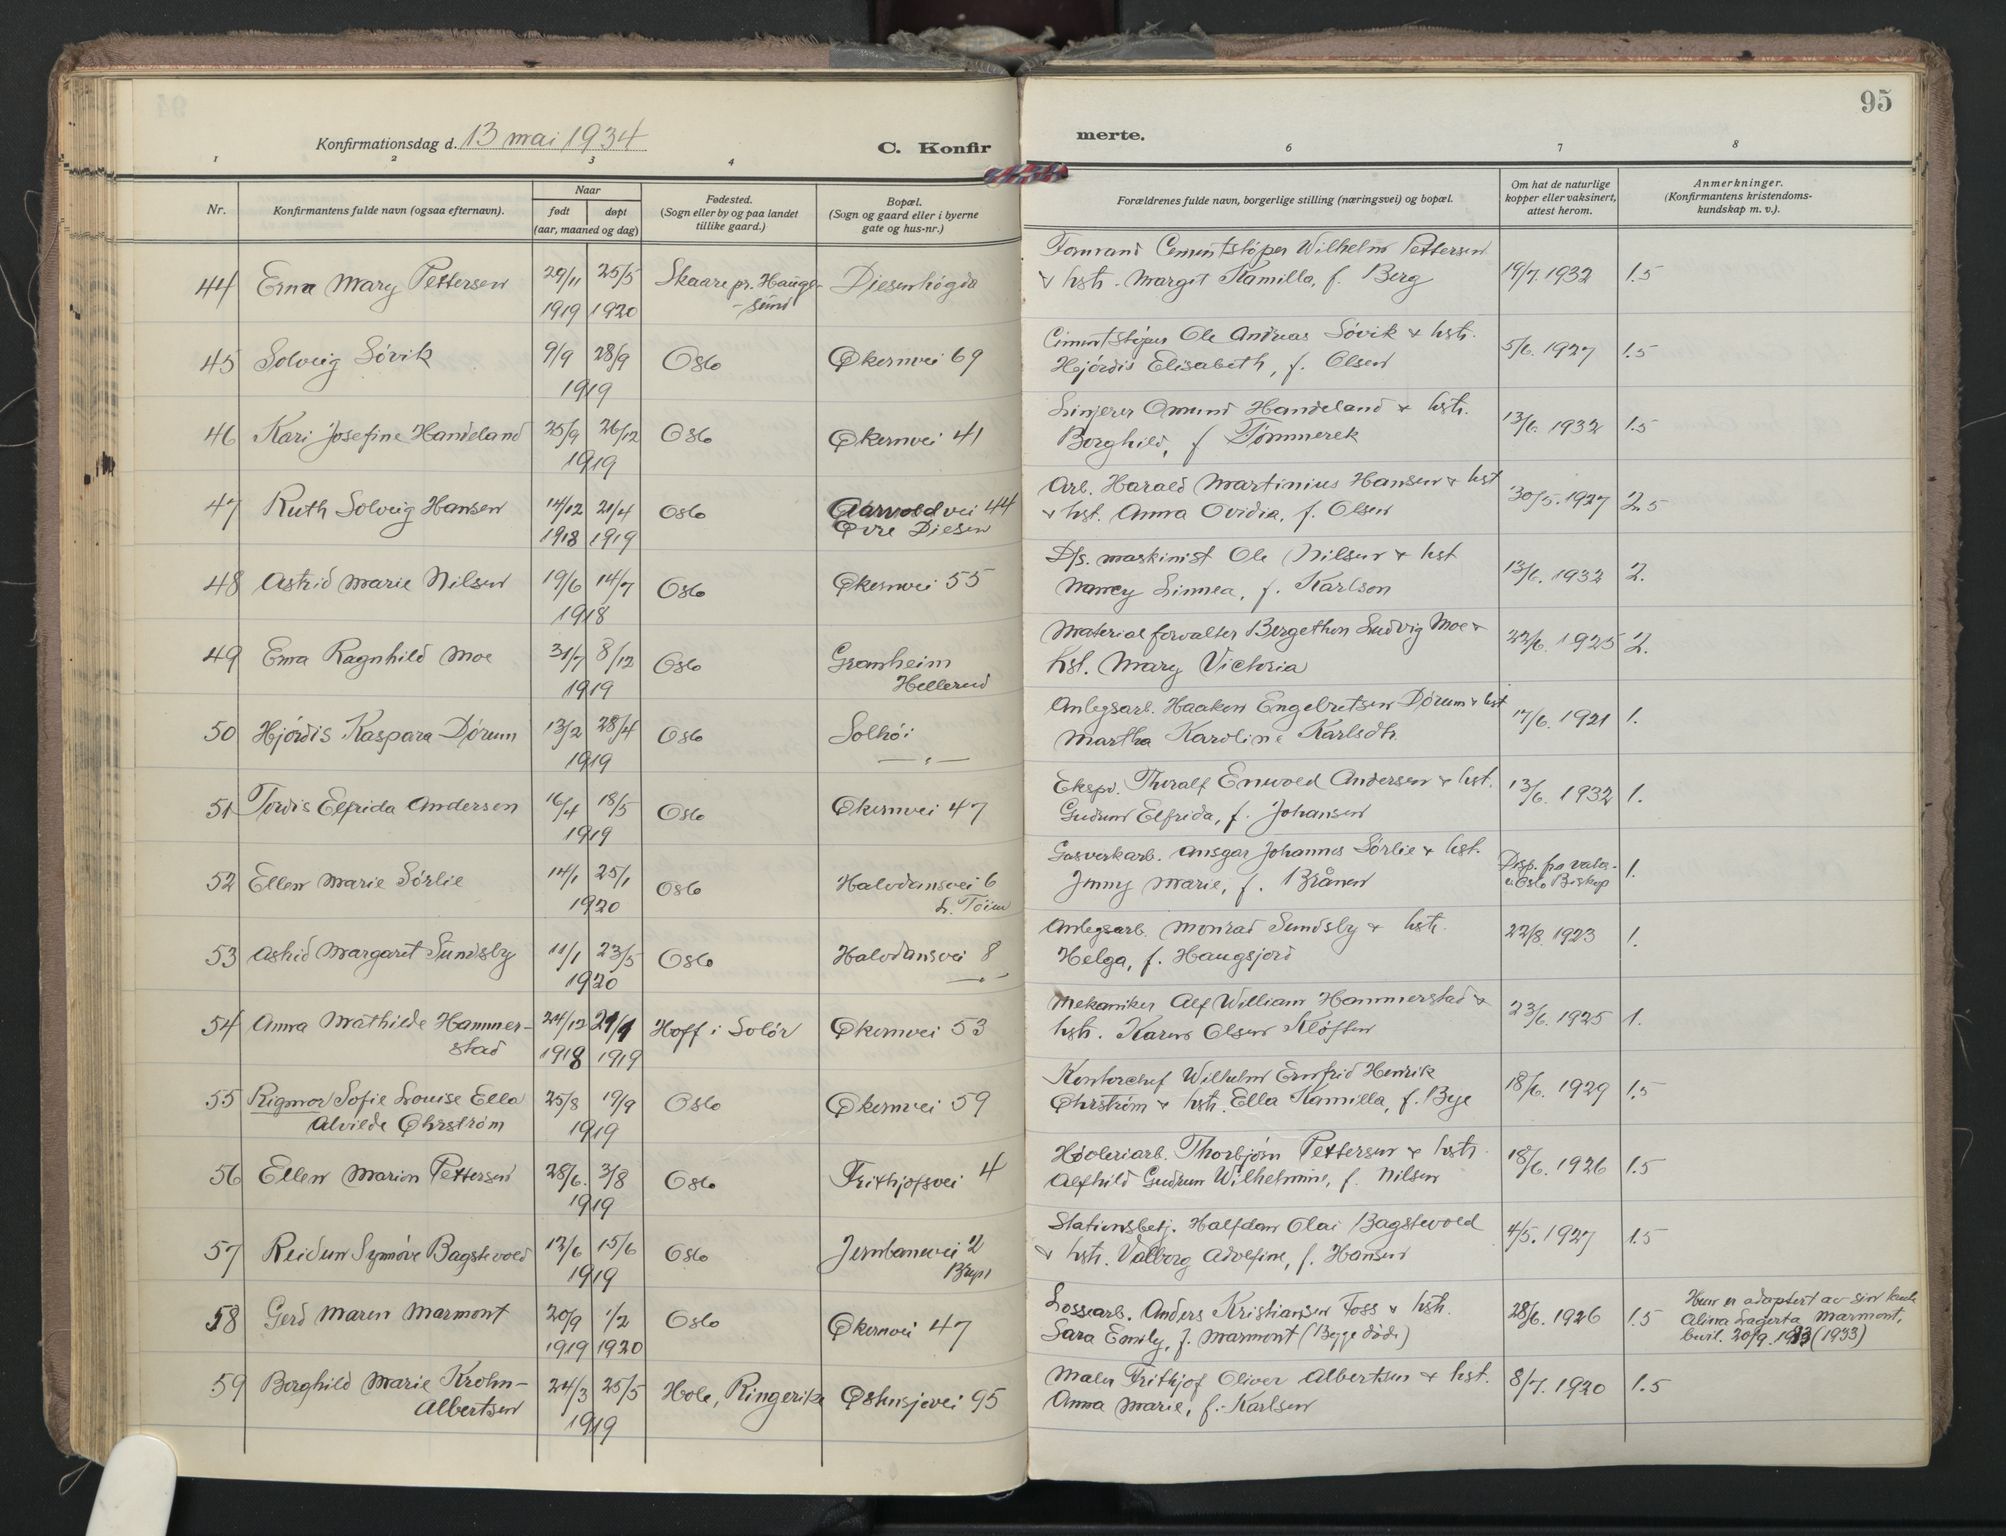 95
Konfirmationsdag d. 13 mai 1934
C. Konfir
merte.
1 2 3 4 6 7 8
Nr.
Konfirmantens fulde navn (ogsaa efternavn).
Naar
født døpt
(aar, maaned og dag)
Fødested.
(Sogn eller by og paa landet
tillike gaard.)
Bopæl.
(Sogn og gaard eller i byerne
gate og hus-nr.)
Forældrenes fulde navn, borgerlige stilling (næringsvei) og bopæl.
Om hat de naturlige
kopper eller vaksinert,
attest herom.
Anmerkninger.
(Konfirmantens kristendoms-
kundskap m. v.).
44 Erna Mary Pettersen 29/11 1919 25/5 1920 Skaare pr. Hauge-
-sund Diesenhøgda
Cementstøper Wilhelm Pettersen
& hstr. Margit Kamilla, f. Berg 19/7. 1932 1.5
45 Solveig Søvik 9/9 28/9 1919 Oslo Økernvei 69
Cementstøper Ole Andreas Søvik & hstr.
Hjørdis Elisabeth, f. Olsen 5/6. 1927 1.5
46 Kari Josefine Handeland 25/9 26/12 1919 Oslo Økernvei 41
Linjerer Omund Handeland & hstr.
Borghild, f. Tømmerek 13/6. 1932 1.5
47 Ruth Solveig Hansen 14/12 1918 21/4 1919 Oslo Aarvoldvei 44
Øvre Diesen
Arb. Harald Martinius Hansen & hst
& hst. Anna Ovidia, f. Olsen 30/5. 1927 2.5
48 Astrid Marie Nilsen 19/6 14/7 1918 Oslo Økernvei 55
D/s. maskinist Ole Nilsen & hst
Nancy Linnea, f. Karlson 13/6. 1932 2.
49 Erna Ragnhild Moe 31/7 8/12 1919 Oslo Granheim
Hellerud
Materialforvalter Bergethon Ludvig Moe &
hst. Mary Victoria 22/6. 1925 2.
50 Hjørdis Kaspara Dørum 13/2 28/4 1919 Oslo Solhøi
— „ —
Anlegsarb. Haakon Engebretsen Dørum & hst
Martha Karoline Karlsdtr. 17/6. 1921 1.
51 Tordis Elfrida Andersen 16/4 18/5 1919 Oslo Økernvei 47
Eksp. Thoralf Enevold Andersen & hst.
Gudrun Elfrida, f. Johansen 13/6. 1932 1.
52 Ellen Marie Sørlie 14/1 25/1 1920 Oslo Halvdansvei 6
L. Tøien
Gasverkarb. Ansgar Johannes Sørlie & hst.
Jenny Marie, f. Brånen Disp. fra
Oslo Biskop 1.
53 Astrid Margaret Sundsby 11/1 23/5 1920 Oslo Halvdansvei 8
— „ —
Anlegsarb. Monrad Sundsby & hstr.
Helga, f. Haugsjord 22/8. 1923 1.
54 Anna Mathilde Hammer-
stad 24/12 1918 21/4 1919 Hoff i Solør Økernvei 53
Mekaniker Alf William Hammerstad &
hstr. Karen Olsen Kløften 23/6. 1925 1.
55 Rigmor Sofie Louise Ella
Alvilde Øhrstrøm 25/8 19/9 1919 Oslo Økernvei 59
Kontorchef Wilhelm Ernfrid Henrik
Øhrstrøm & hstr. Ella Kamilla, f. Bye 18/6. 1929 1.5
56 Ellen Marion Pettersen 28/6. 3/8 1919 Oslo Frithjofsvei 4
Høvleriarb. Thorbjørn Pettersen & hstr.
Alfhild Gudrun Wilhelmine, f. Nilsen 18/6. 1926 1.5
57 Reidun Synnøve Bagstevold 13/6 15/6 1919 Oslo Jernbanevei 2
Bryn
Stationsbetj. Halfdan Olai Bagstevold
& hstr. Valborg Adolfine, f. Hansen 4/5. 1927 1.5
58 Gerd Maren Marmont 20/9 1919 1/2 1920 Oslo Økernvei 47
Lossearb. Anders Kristiansen Foss & hstr.
Sara Emily, f. Marmont (Begge døde) 28/6. 1926 1.5
Hun er adoptert av sin tante
Alina Lagerta Marmont,
bevil. 20/9. 1933 (1933)
59 Borghild Marie Krohn-
Albertsen 24/3 25/5 1919 Hole, Ringerike Østensjøvei 95
Maler Frithjof Oliver Albertsen & hst.
Anna Marie, f. Karlsen 8/7. 1920 1.5